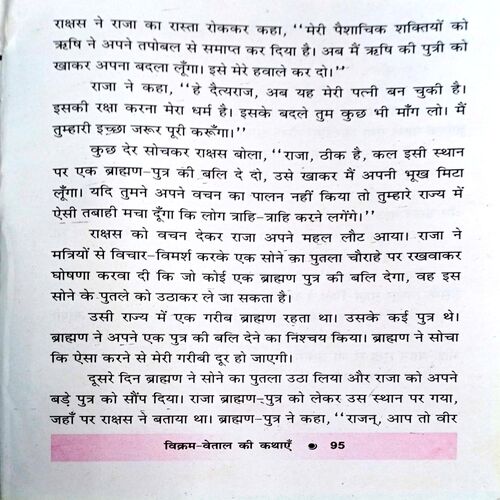 राक्षस ने राजा का रास्ता रोककर कहा, ‘‘मेरी पैशाचिक शक्तियों को
ऋषि ने अपने तपोबल से समाप्त कर दिया है। अब मैं ऋषि की पुत्री को
खाकर अपना बदला लूँगा। इसे मेरे हवाले कर दो।’’
राजा ने कहा, ‘‘हे दैत्यराज, अब यह मेरी पत्नी बन चुकी है।
इसकी रक्षा करना मेरा धर्म है। इसके बदले तुम कुछ भी माँग लो। मैं
तुम्हारी इच्छा जरूर पूरी करूँगा।’’
कुछ देर सोचकर राक्षस बोला, ‘‘राजा, ठीक है, कल इसी स्थान
पर एक ब्राह्मण-पुत्र की बलि दे दो, उसे खाकर मैं अपनी भूख मिटा
लूँगा। यदि तुमने अपने वचन का पालन नहीं किया तो तुम्हारे राज्य में
ऐसी तबाही मचा दूँगा कि लोग त्राहि-त्राहि करने लगेंगे।’’
राक्षस को वचन देकर राजा अपने महल लौट आया। राजा ने
मंत्रियों से विचार-विमर्श करके एक सोने का पुतला चौराहे पर रखवाकर
घोषणा करवा दी कि जो कोई एक ब्राह्मण पुत्र की बलि देगा, वह इस
सोने के पुतले को उठाकर ले जा सकता है।
उसी राज्य में एक गरीब ब्राह्मण रहता था। उसके कई पुत्र थे।
ब्राह्मण ने अपने एक पुत्र की बलि देने का निश्चय किया। ब्राह्मण ने सोचा
कि ऐसा करने से मेरी गरीबी दूर हो जाएगी।
दूसरे दिन ब्राह्मण ने सोने का पुतला उठा लिया और राजा को अपने
बड़े पुत्र को सौंप दिया। राजा ब्राह्मण-पुत्र को लेकर उस स्थान पर गया,
जहाँ पर राक्षस ने बताया था। ब्राह्मण-पुत्र ने कहा, ‘‘राजन्, आप तो वीर
विक्रम-वेताल की कथाएँ ● 95